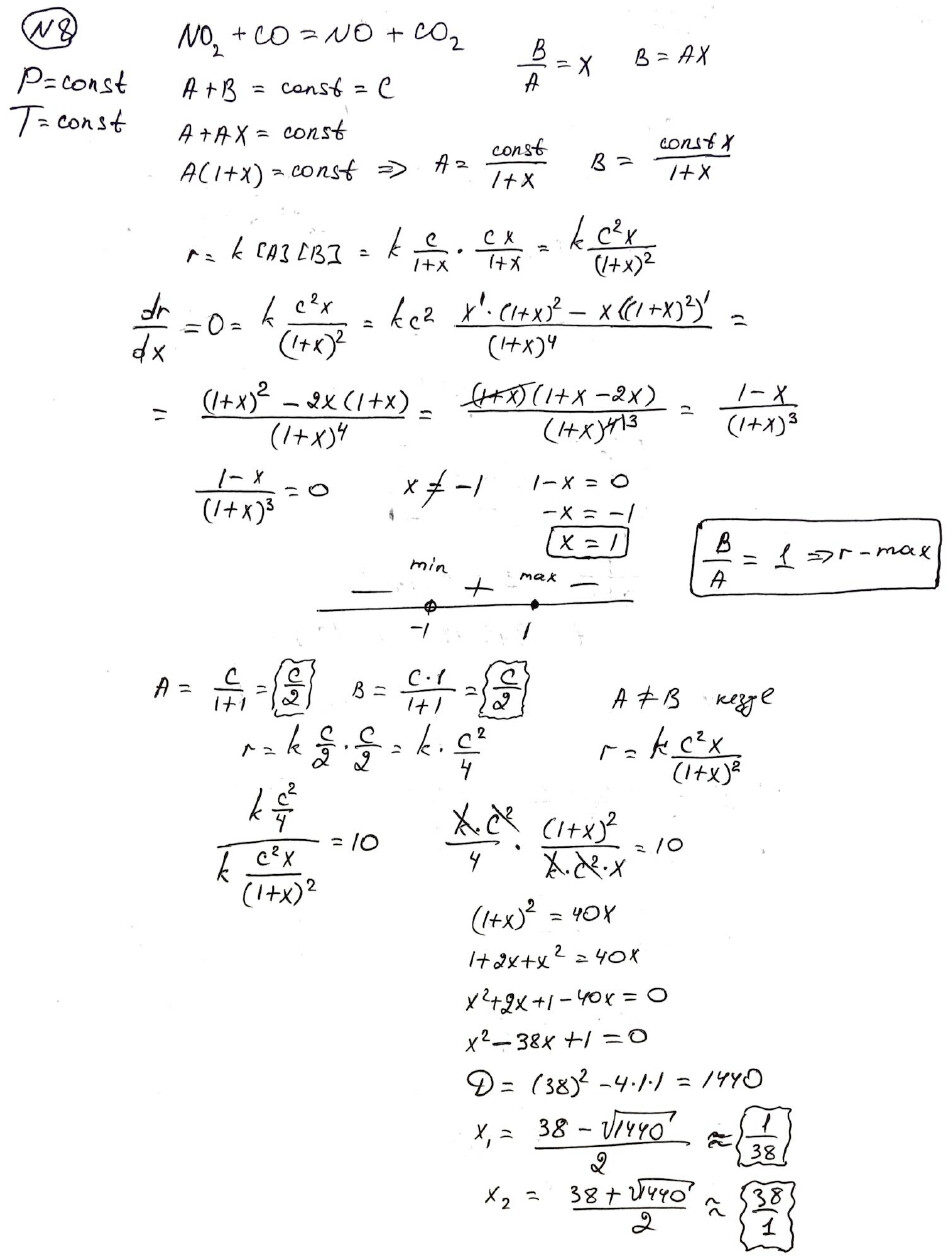 N8
NO₂ + CO = NO + CO₂
B/A = x B = AX
P=const
A+B = const = C
T=const
A+AX = const
A(1+x) = const ⇒ A = const/(1+x) B = const x/(1+x)
r = k [A][B] = k c/(1+x) · cx/(1+x) = k c²x/(1+x)²
dr/dx = 0 = k c²x/(1+x)² = kc² (x'·(1+x)² – x((1+x)²)')/(1+x)⁴ =
= ((1+x)² – 2x(1+x))/(1+x)⁴ = ((1+x)(1+x–2x))/(1+x)⁴⎞³ = (1–x)/(1+x)³
(1–x)/(1+x)³ = 0 x ≠ –1 1–x = 0
–x = –1
x = 1
B/A = 1 ⇒ r – max
– min + max –
–1 1
A = c/(1+1) = c/2 B = c·1/(1+1) = c/2 A ≠ B кезде
r = k c/2 · c/2 = k · c²/4 r = k c²x/(1+x)²
(k c²/4)/(k c²x/(1+x)²) = 10 k·c²/4 · (1+x)²/(k·c²·x) = 10
(1+x)² = 40x
1+2x+x² = 40x
x²+2x+1–40x = 0
x²–38x+1 = 0
D = (38)² –4·1·1 = 1440
x₁ = (38 – √1440)/2 ≈ 1/38
x₂ = (38 + √1440)/2 ≈ 38/1